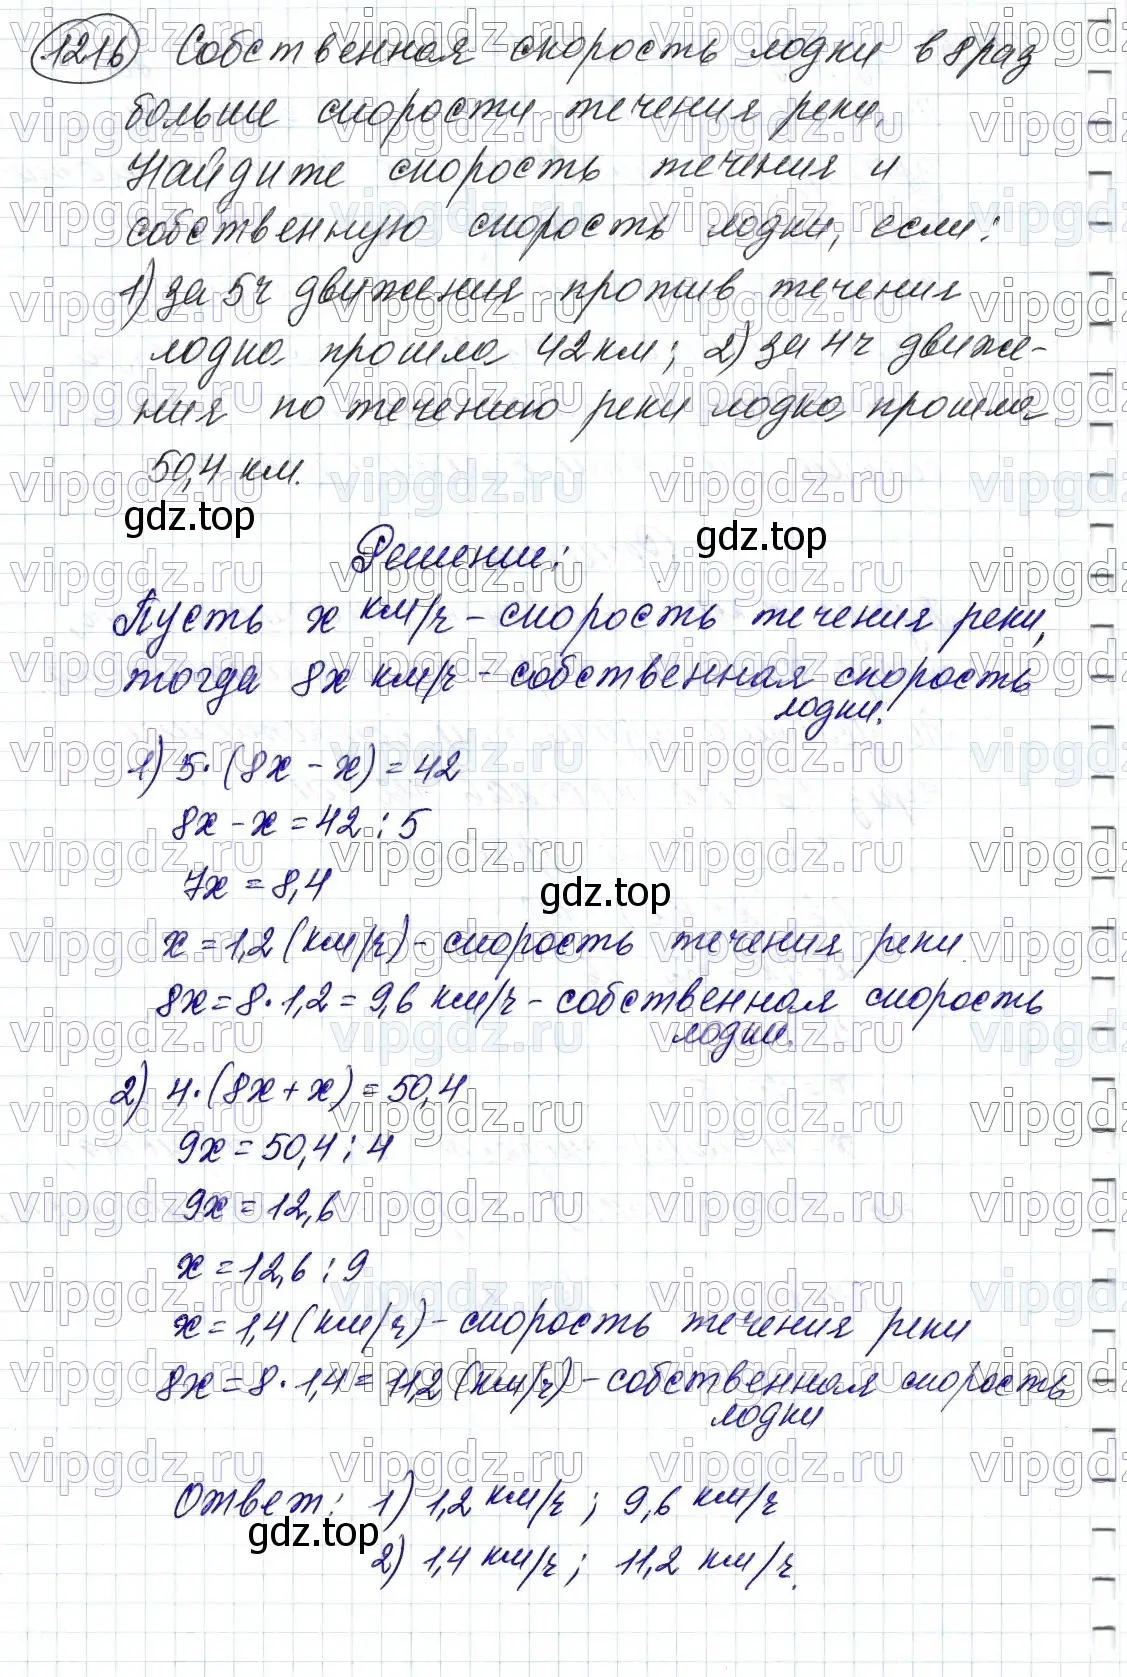 1216 Собственная скорость лодки в 8 раз
больше скорости течения реки.
Найдите скорость течения и
собственную скорость лодки, если:
1) за 5 ч движения против течения
лодка прошла 42 км; 2) за 4 ч движе-
ния по течению реки лодка прошла
50,4 км.
gdz.top
gdz.top
Решение:
Пусть x км/ч - скорость течения реки,
тогда 8x км/ч - собственная скорость
лодки.
1) 5·(8x - x) = 42
8x - x = 42 : 5
7x = 8,4
gdz.top
x = 1,2 (км/ч) - скорость течения реки
8x = 8·1,2 = 9,6 км/ч - собственная скорость
лодки.
2) 4·(8x + x) = 50,4
9x = 50,4 : 4
9x = 12,6
x = 12,6 : 9
x = 1,4 (км/ч) - скорость течения реки
8x = 8·1,4 = 11,2 (км/ч) - собственная скорость
лодки
Ответ: 1) 1,2 км/ч; 9,6 км/ч
gdz.top
2) 1,4 км/ч; 11,2 км/ч.
vipgdz.ru